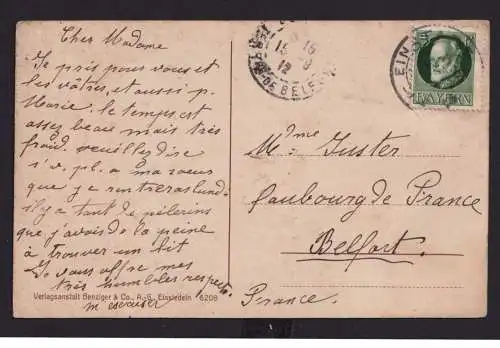 Cher Madame
Je pris pour vous et
les vôtres, et aussi p.
Marie. le temps est
assez beau mais très
froid. veuillez dire
s'v. pl. a ma sœur
que je rentreras lundi.
il y a tant de pélerins
que j'avois de la peine
à trouver un lit
Je vous offre mes
très humbles respects.
Verlagsanstalt Benziger & Co., A.-G., Einsiedeln 6208
BELFORT
EIN
BAYERN
Mme
Juster
Faubourg de France
Belfort.
France.